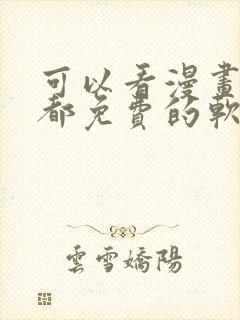 可以看漫畫
都免費的軟
雲雪嬌陽